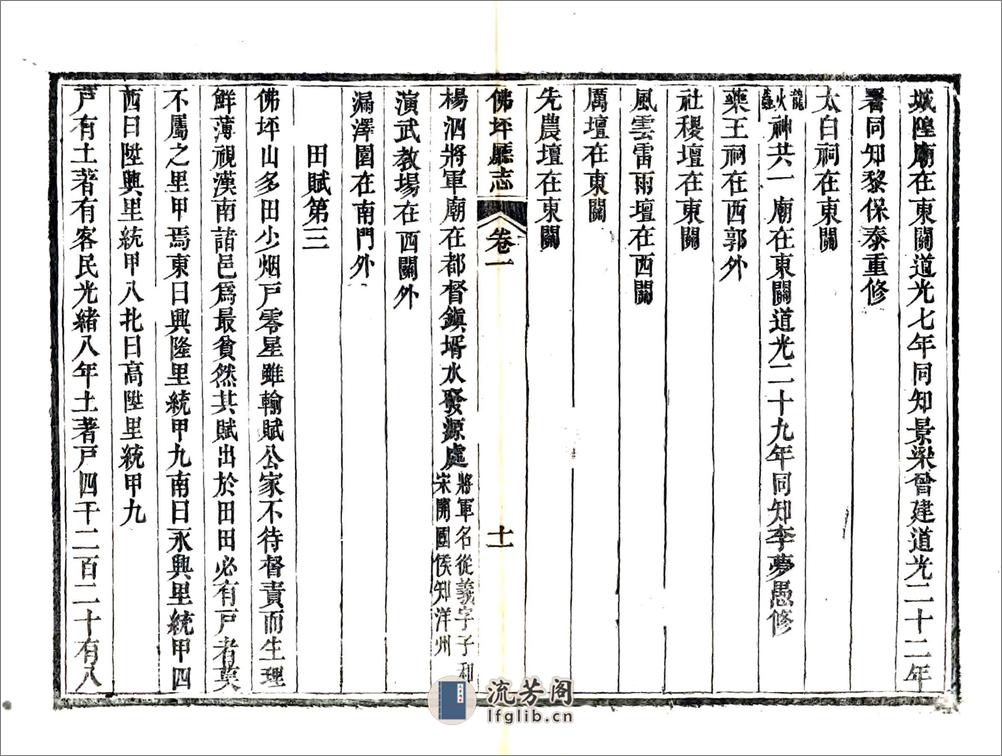 城隍廟在東關道光七年同知景梁曾建道光二十二年
署同知黎保泰重修
太白祠在東關
龍火蟲神共一廟在東關道光二十九年同知李夢愚修
藥王祠在西郭外
社稷壇在東關
風雲雷雨壇在西關
厲壇在東關
先農壇在東關
佛坪廳志 卷一 十一
楊泗將軍廟在都督鎮壻水發源處將軍名從義字子和宋開國侯知洋州
演武教場在西關外
漏澤園在南門外
田賦第三
佛坪山多田少烟戶零星雖輸賦公家不待督責而生理
鮮薄視漢南諸邑爲最貧然其賦出於田田必有戶者莫
不屬之里甲焉東曰興隆里統甲九南曰永興里統甲四
西曰陞興里統甲八北曰高陞里統甲九
戶有土著有客民光緒八年土著戶四千二百二十有八
流芳阁
lfglib.cn